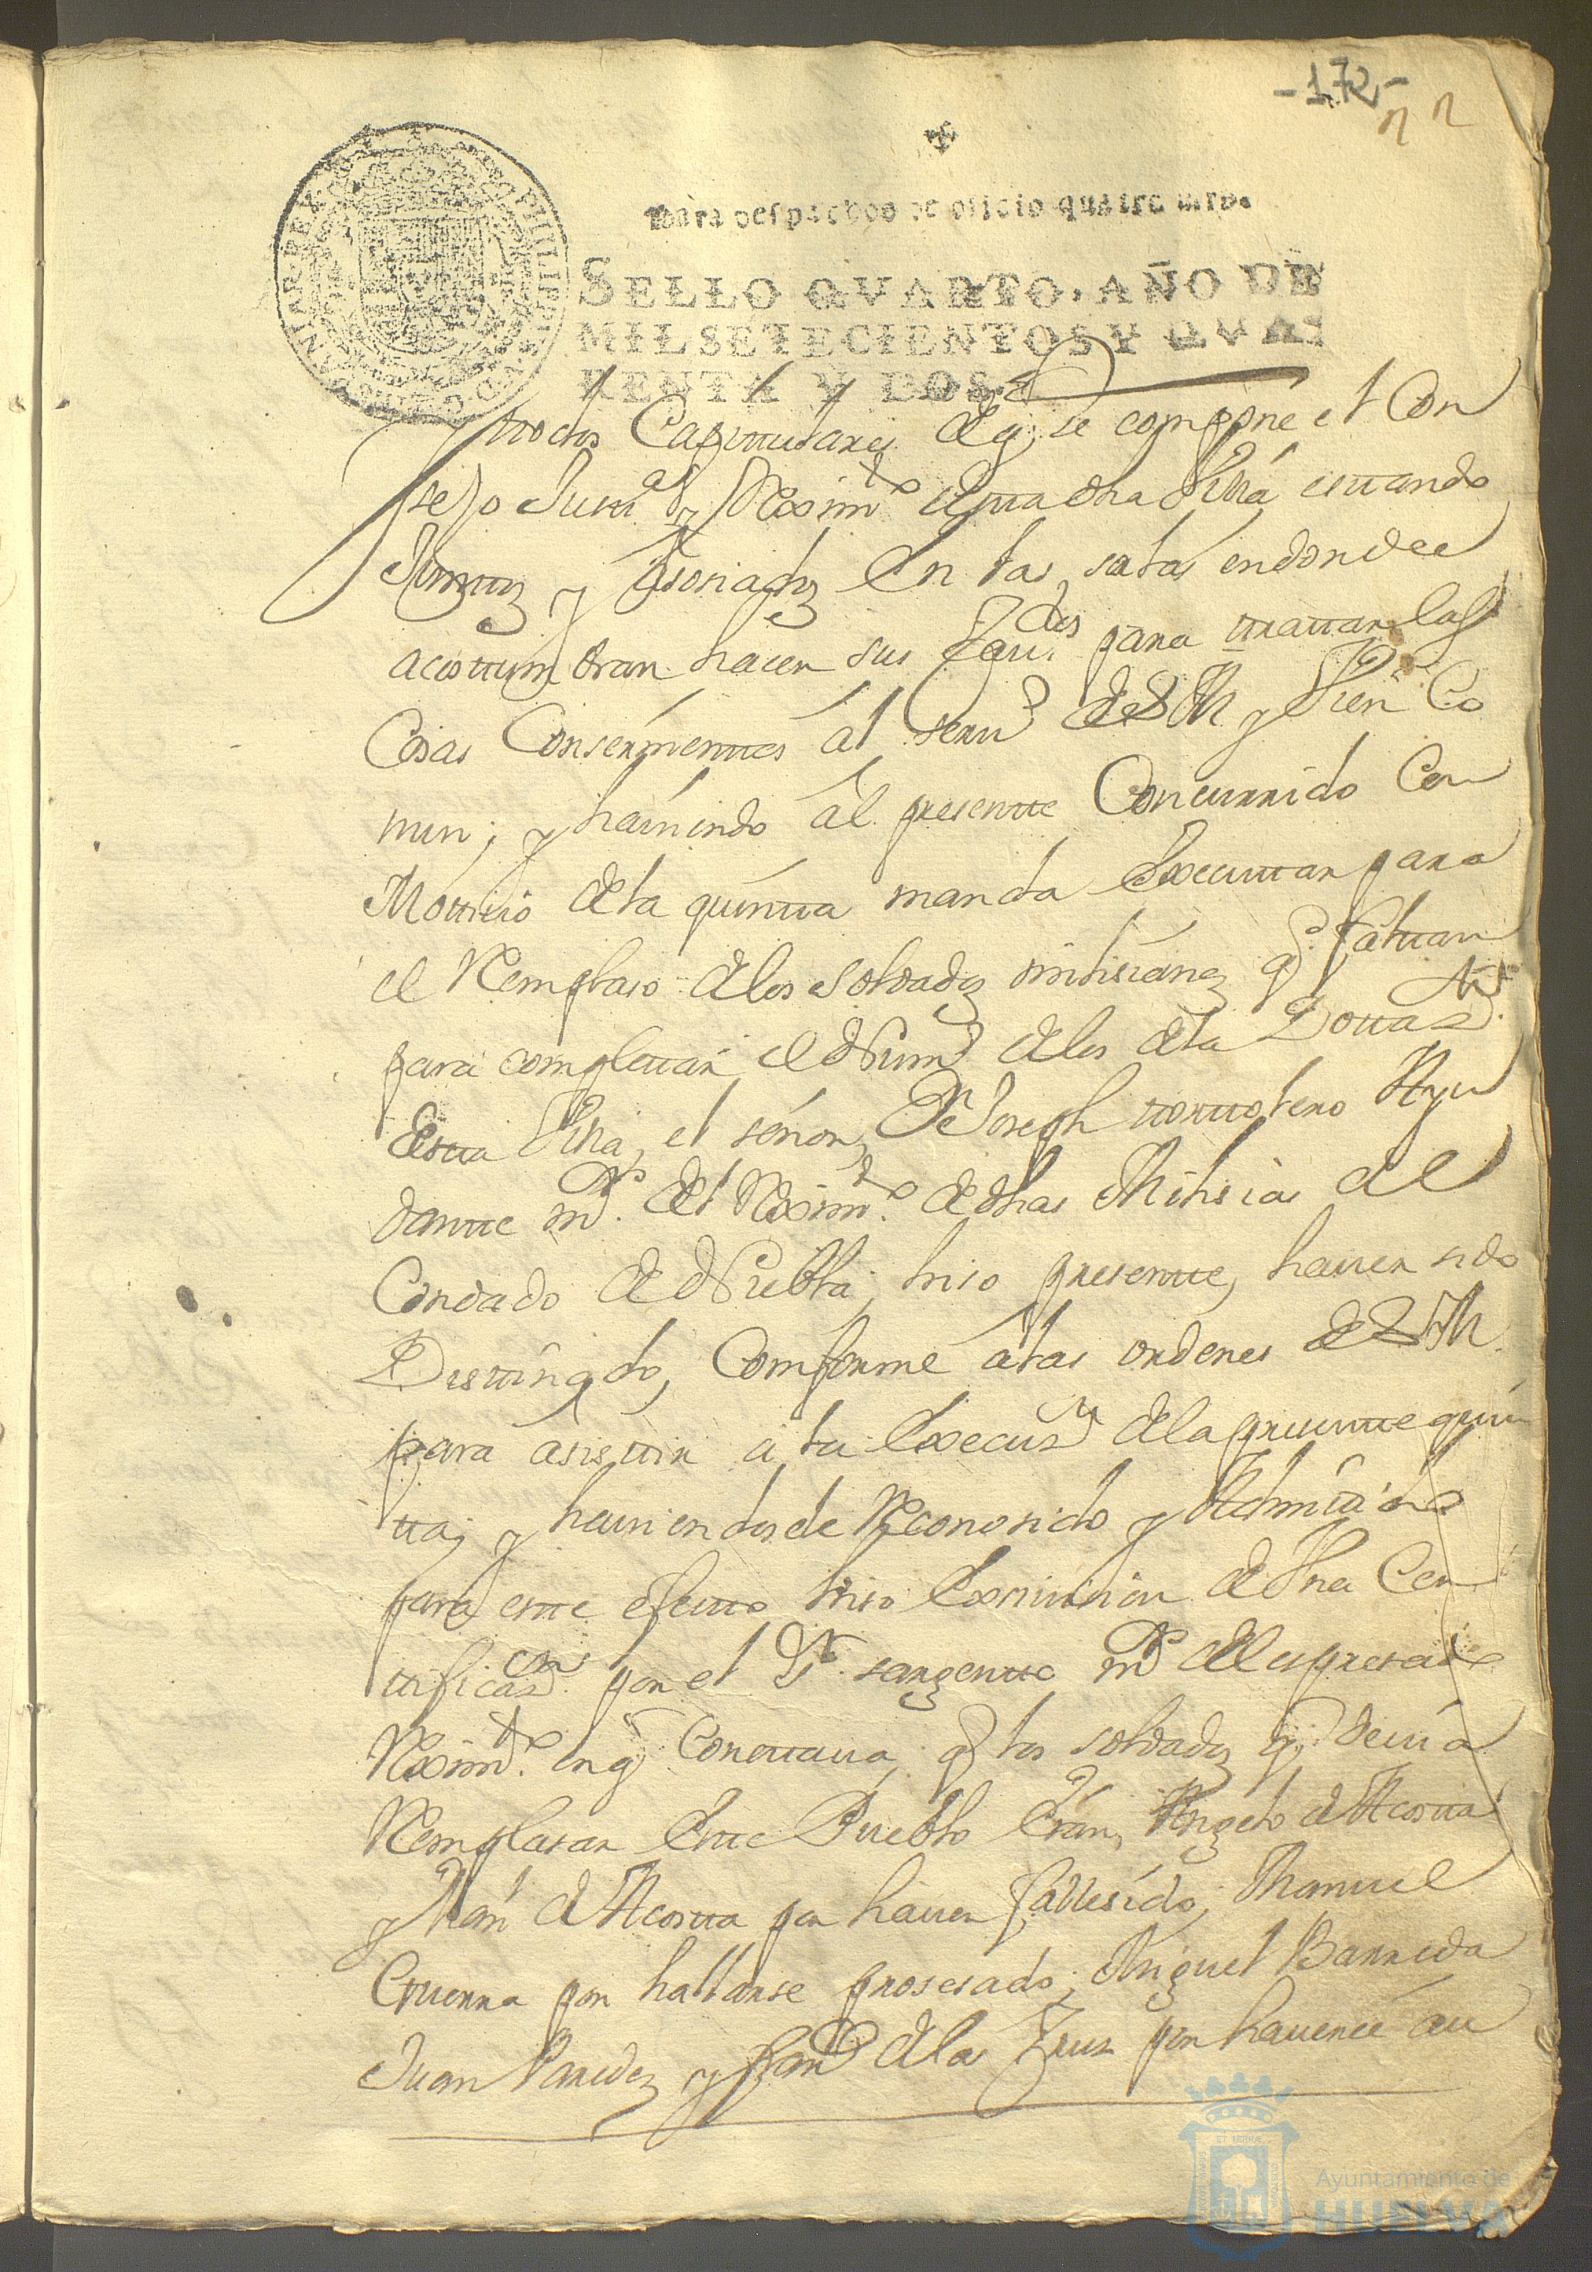 -172-
✠
Para despachos de oficio quatro mrs.
SELLO QVARTO, AÑO DE
MIL SETECIENTOS Y QVA-
RENTA Y DOS.
ttodos Capittulares de q se compone el Con
sejo Justtª y Reximtº de estta dha Villa esttando
Junttos y asosiados En las salas en donde
acosttumbran hacer sus Cauidos para ttrattar las
Cosas Consernienttes al seruº de S M y Vien Co
mun; y hauiendo al presentte Concurrido Con
Mottiuo de la quintta manda Executtar para
el Remplaso de los soldados milisianos q faltan
para complettar el Numº de los de la Dottasn
de estta Villa, el señor Dn Joseph Ayu
dantte mr del Reximtº de dhas Milisias del
Condado de Niebla, hiso presentte, hauer sido
Desttinado, Comforme a las ordenes de S M
para asisttir a la Execusn de la presentte quin
tta; y hauiendosele Reconosido y Admittido
para estte efectto hiso Exsiuision de Vna Cer
ttificasn por el Sr sargentto mr del espresado
Reximtº en q Consttaua, q los soldados q deuia
Remplasar Estte Pueblo Eran, Angelo de Acostta
y Juan de Acostta por hauer fallesido, Manuel
Guerra por hallarse prosesado; Miguel Barreda
Juan Paredes y Franº de la Cruz por hauerse au
Ayuntamiento de
HUELVA